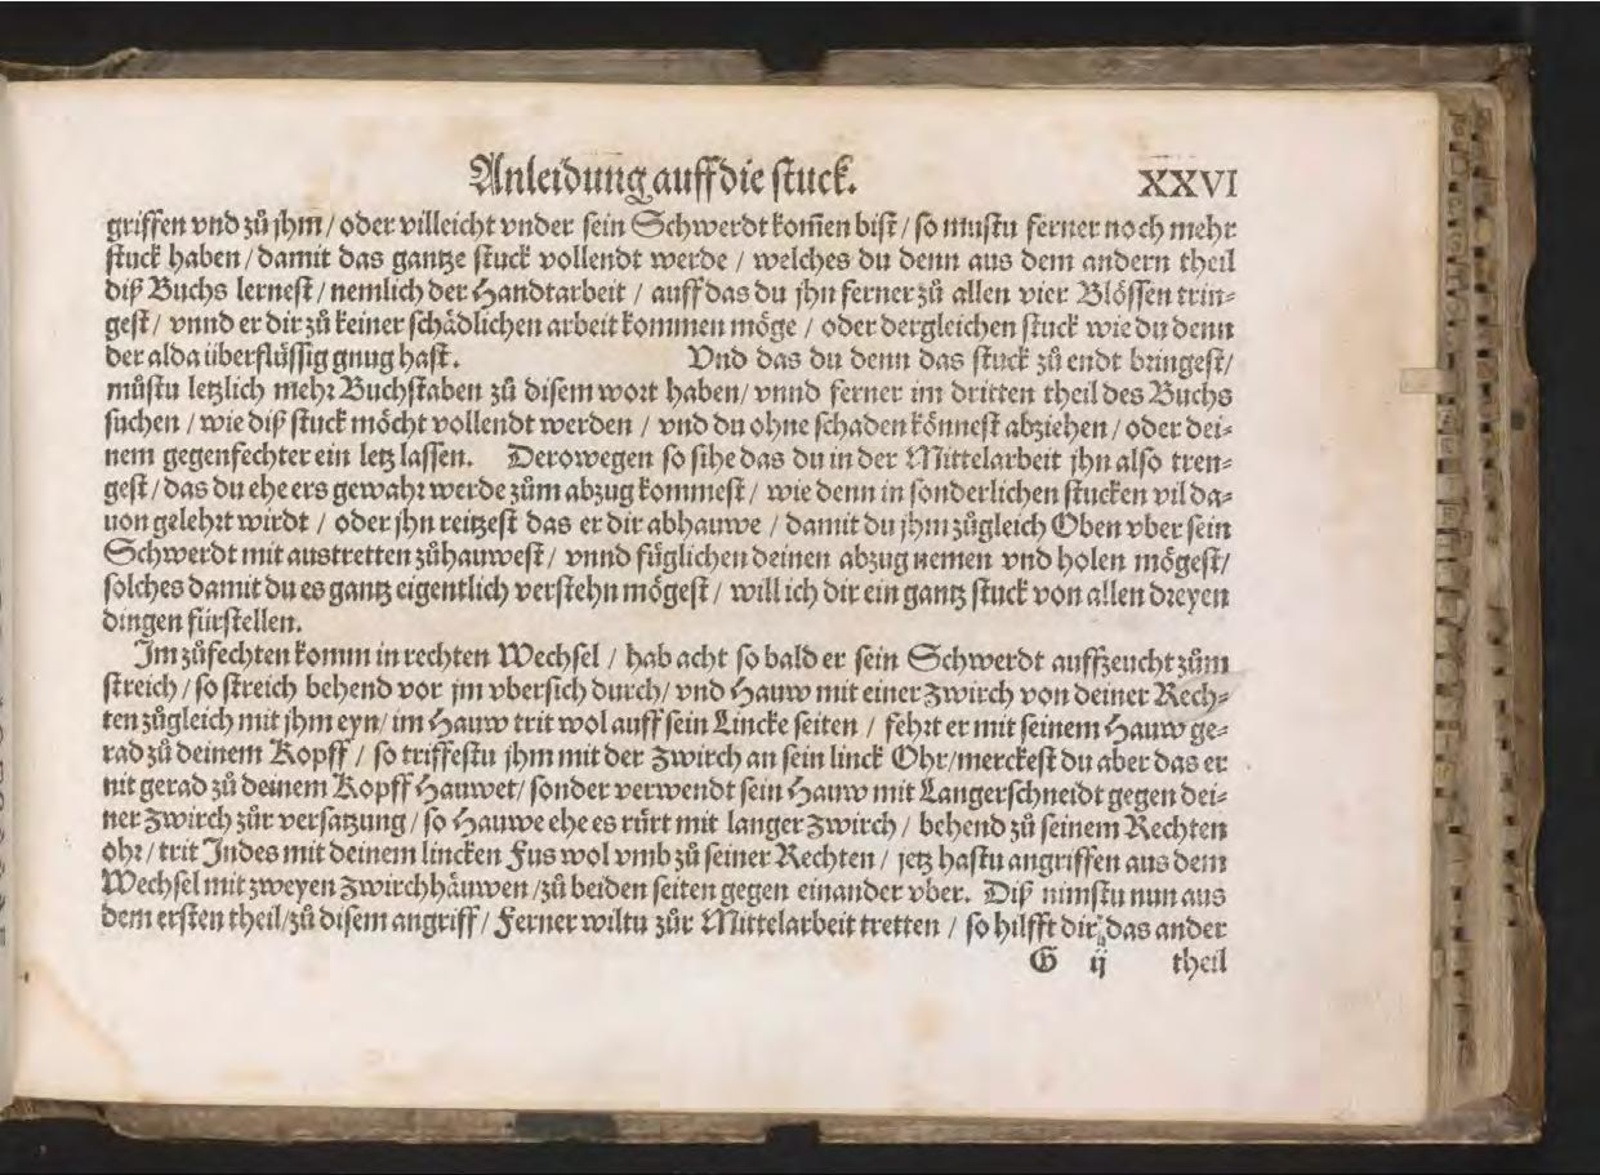 Anleidung auff die stuck. XXVI
griffen vnd zů jhm / oder villeicht vnder sein Schwerdt kom̃en bist / so mustu ferner noch mehr
stuck haben / damit das gantze stuck vollendt werde / welches du denn aus dem andern theil
diß Buchs lernest / nemlich der Handtarbeit / auff das du jhn ferner zů allen vier Blössen trin⸗
gest / vnnd er dir zů keiner schädlichen arbeit kommen möge / oder dergleichen stuck wie du denn
der alda überflüssig gnug hast. Vnd das du denn das stuck zů endt bringest /
můstu letzlich mehr Buchstaben zů disem wort haben / vnnd ferner im dritten theil des Buchs
suchen / wie diß stuck möcht vollendt werden / vnd du ohne schaden könnest abziehen / oder dei⸗
nem gegenfechter ein letz lassen. Derowegen so sihe das du in der Mittelarbeit jhn also tren⸗
gest / das du ehe ers gewahr werde zům abzug kommest / wie denn in sonderlichen stucken vil da⸗
uon gelehrt wirdt / oder jhn reitzest das er dir abhauwe / damit du jhm zůgleich Oben vber sein
Schwerdt mit austretten zůhauwest / vnnd füglichen deinen abzug nemen vnd holen mögest /
solches damit du es gantz eigentlich verstehn mögest / will ich dir ein gantz stuck von allen dreyen
dingen fürstellen.
Im zůfechten komm in rechten Wechsel / hab acht so bald er sein Schwerdt auffzeucht zům
streich / so streich behend vor jm vbersich durch / vnd Hauw mit einer Zwirch von deiner Rech⸗
ten zůgleich mit jhm eyn / im Hauw trit wol auff sein Lincke seiten / fehrt er mit seinem Hauw ge⸗
rad zů deinem Kopff / so triffestu jhm mit der Zwirch an sein linck Ohr / merckest du aber das er
nit gerad zů deinem Kopff Hauwet / sonder verwendt sein Hauw mit Langerschneidt gegen dei⸗
ner Zwirch zůr versatzung / so Hauwe ehe es rürt mit langer Zwirch / behend zů seinem Rechten
ohr / trit Indes mit deinem lincken Fus wol vmb zů seiner Rechten / jetz hastu angriffen aus dem
Wechsel mit zweyen Zwirchhäuwen / zů beiden seiten gegen einander vber. Diß nimstu nun aus
dem ersten theil / zů disem angriff / Ferner wiltu zůr Mittelarbeit tretten / so hilfft dir das ander
G ij theil